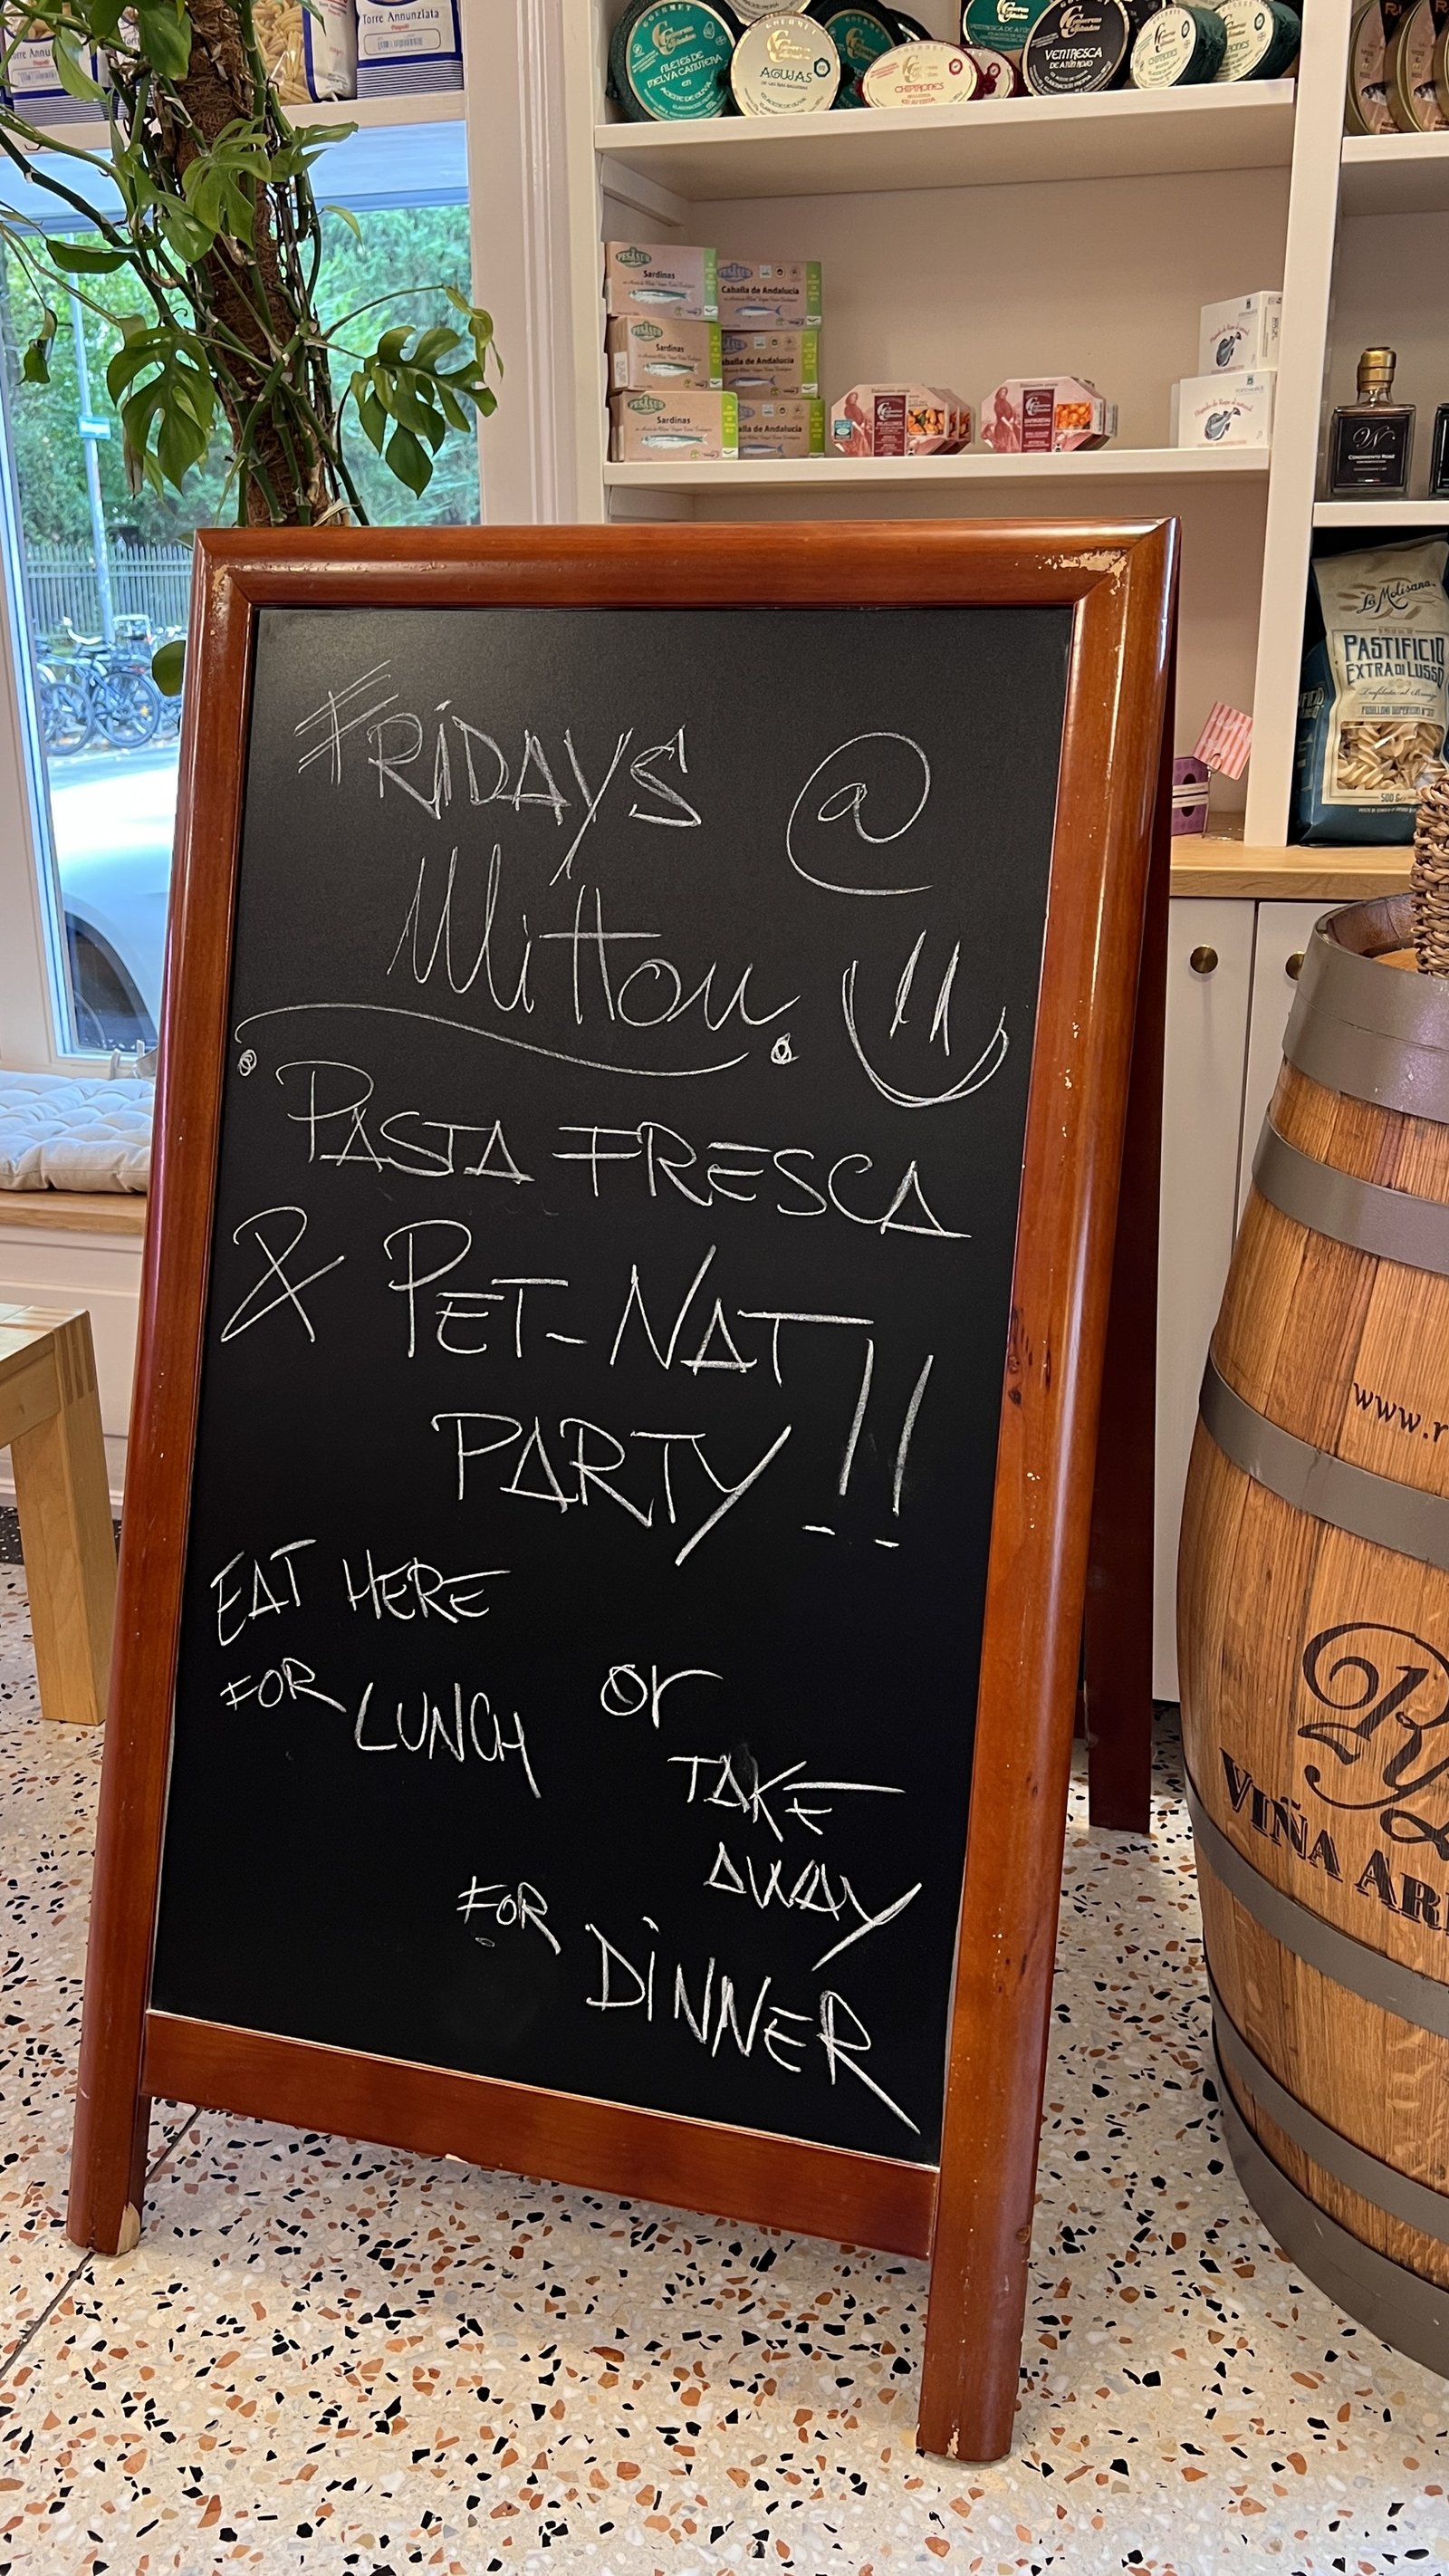 Torre Annunziata
GOURMET
FILETES DE
MELVA CANUTERA
EN
ACEITE DE OLIVA
AGUJAS
ACEITE DE OLIVA
CHIPIRONES
VENTRESCA
DE ATÚN ROJO
CHIPIRONES
PESASUR
Sardinas
Caballa de Andalucía
PESASUR
Sardinas
Caballa de Andalucía
PESASUR
Sardinas
Caballa de Andalucía
W
CONDIMENTO ROSÉ
La Molisana
PASTIFICIO
EXTRA DI LUSSO
500 G
FRIDAYS @
Mitton
PASTA FRESCA
& PET-NAT
PARTY !!
EAT HERE
FOR LUNCH or
TAKE
AWAY
FOR DINNER
www.r
VIÑA AR